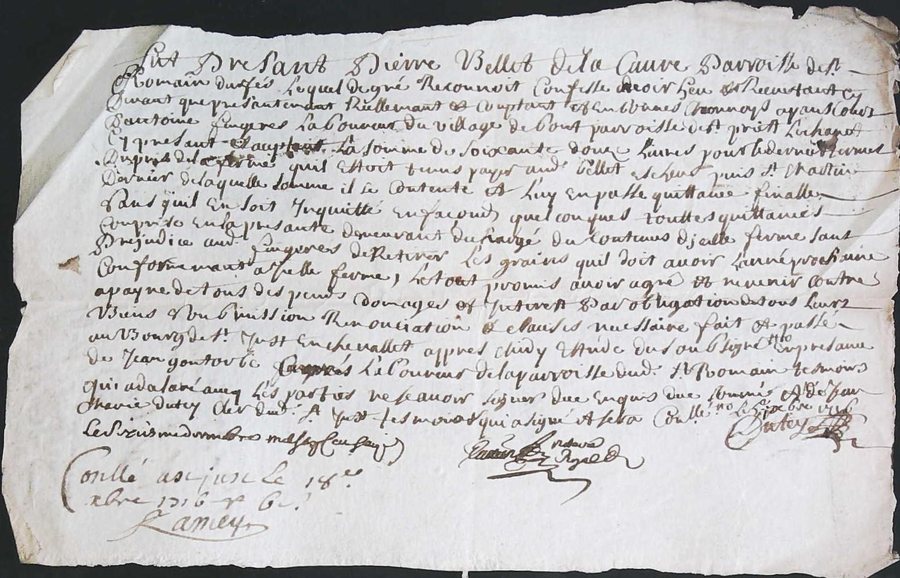 Fut Presant Pierre Vellet de la Caure Parroisse de St
Romain Durfés Lequel de gré Reconnoit Confesse avoir heu et Receu tant cy
devant que presantement Riellemant et Comptant et en bonnes monnoys ayans cours
D'antoine fugeres Laboureur du village de bont parroisse de St priest
Et present La somme de soixante douze Livres pour le dernier termes
du pris de ferme quil Estoit tenus payer aud Vellet Escheus puis St Martin
Dernier de laquelle somme il se Contente et Luy en passe quittance finalle
Sans quil En soit Inquietté En facond quelconques touttes quittances
Comprise En la presante demeurant deschargé du Contenus d'jcelle ferme sans
Prejudice aud fugeres de Retirer Les grains quil doit avoir L'anné prochaine
Conformemant a jcelle ferme, Le tout promis avoir agré et nevenir contre
a payne de tous despends domages et Interets Par obligation de tous Leurs
Biens soubmission Renonciation et clauses necessaire fait et passé
au Bourg de St Just En chevallet appres midy Estude du soubsigné En presance
de Jean gontorbe Laboureur de la parroisse dud St Romain tesmoins
qui a declaré avecq Les parties ne sçavoir signer due Enquis due sommé et de Jean
Marie Dutey Clerc dud St Just tesmoins qui a signé
Le sixiesme decembre mil sept cent seize
Dutey
Royal
Conllé a st just Le 18e
xbre 1716 R 6 s
Ramey